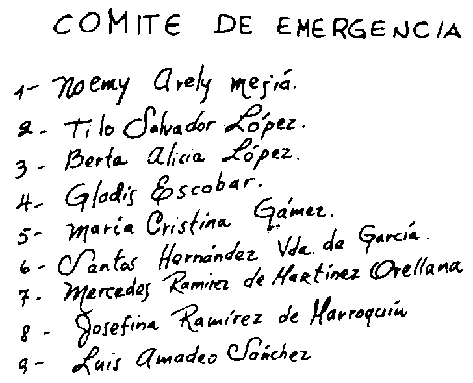 COMITE DE EMERGENCIA
1- Noemy Arely mejiá.
2- Tilo Salvador López.
3- Berta Alicia López.
4- Gladis Escobar.
5- María Cristina Gámez.
6- Santos Hernández Vda. de García.
7- Mercedes Ramirez de Martínez Orellana
8- Josefina Ramírez de Marroquín
9- Luis Amadeo Sánchez